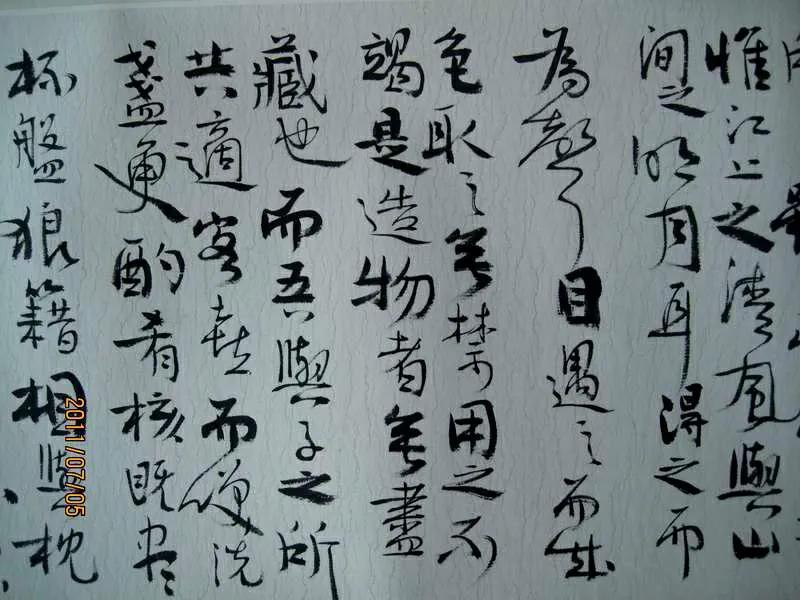 惟江上之清風與山
間之明月耳得之而
為聲目遇之而成
色取之無禁用之不
竭是造物者無盡
藏也而吾與子之所
共適客喜而笑洗
盞更酌肴核既尽
杯盤狼籍相與枕
2011/07/05